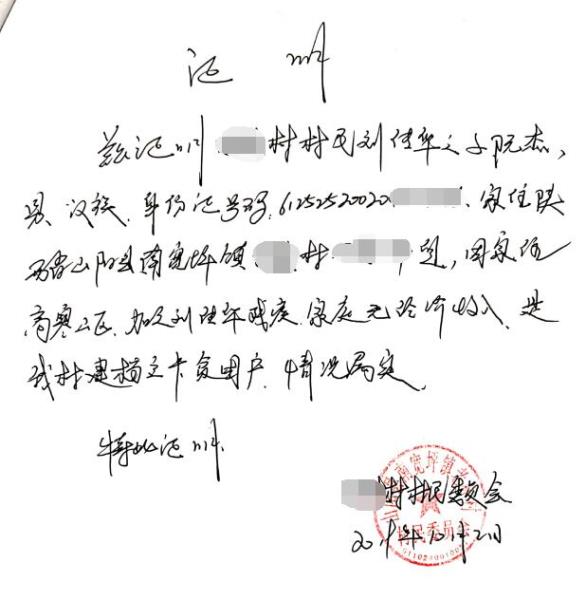 证明
兹证明 村村民刘佳华之子阮杰,
男、汉族、身份证号码,6125252002 、家住陕
西省山阳县南宽坪镇 村 组,因家住
高寒山区、加之刘佳华残疾、家庭无经济收入、是
我村建档立卡贫困户、情况属实。
特此证明.
村村民委员会
年 月 日
南宽坪镇
村民委员会